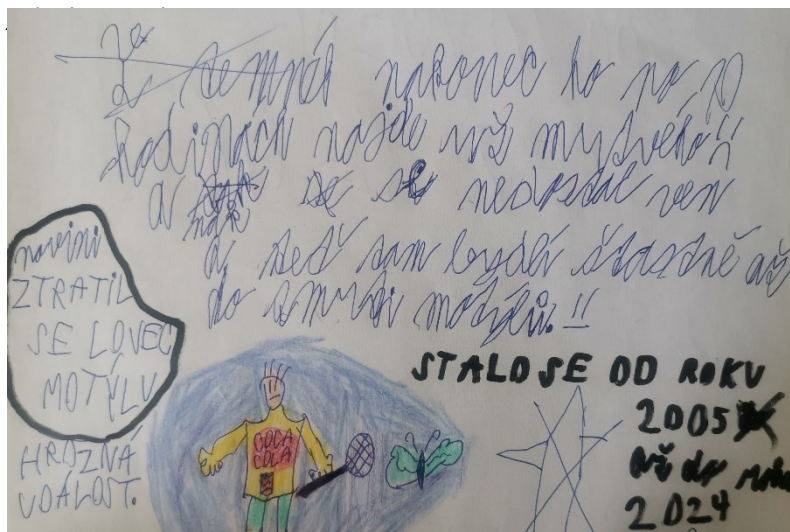 zemřel nakonec ho po 10
hodinách najde už mrtvého!!
a nedostal ven
a teď sam bydlí štastně až
do smrti motýlů.!!
novini
ZTRATIL
SE LOVEC
MOTÝLU
HROZNÁ
UDÁLOST.
COCA
COLA
STALO SE OD ROKU
2005
až do
2024